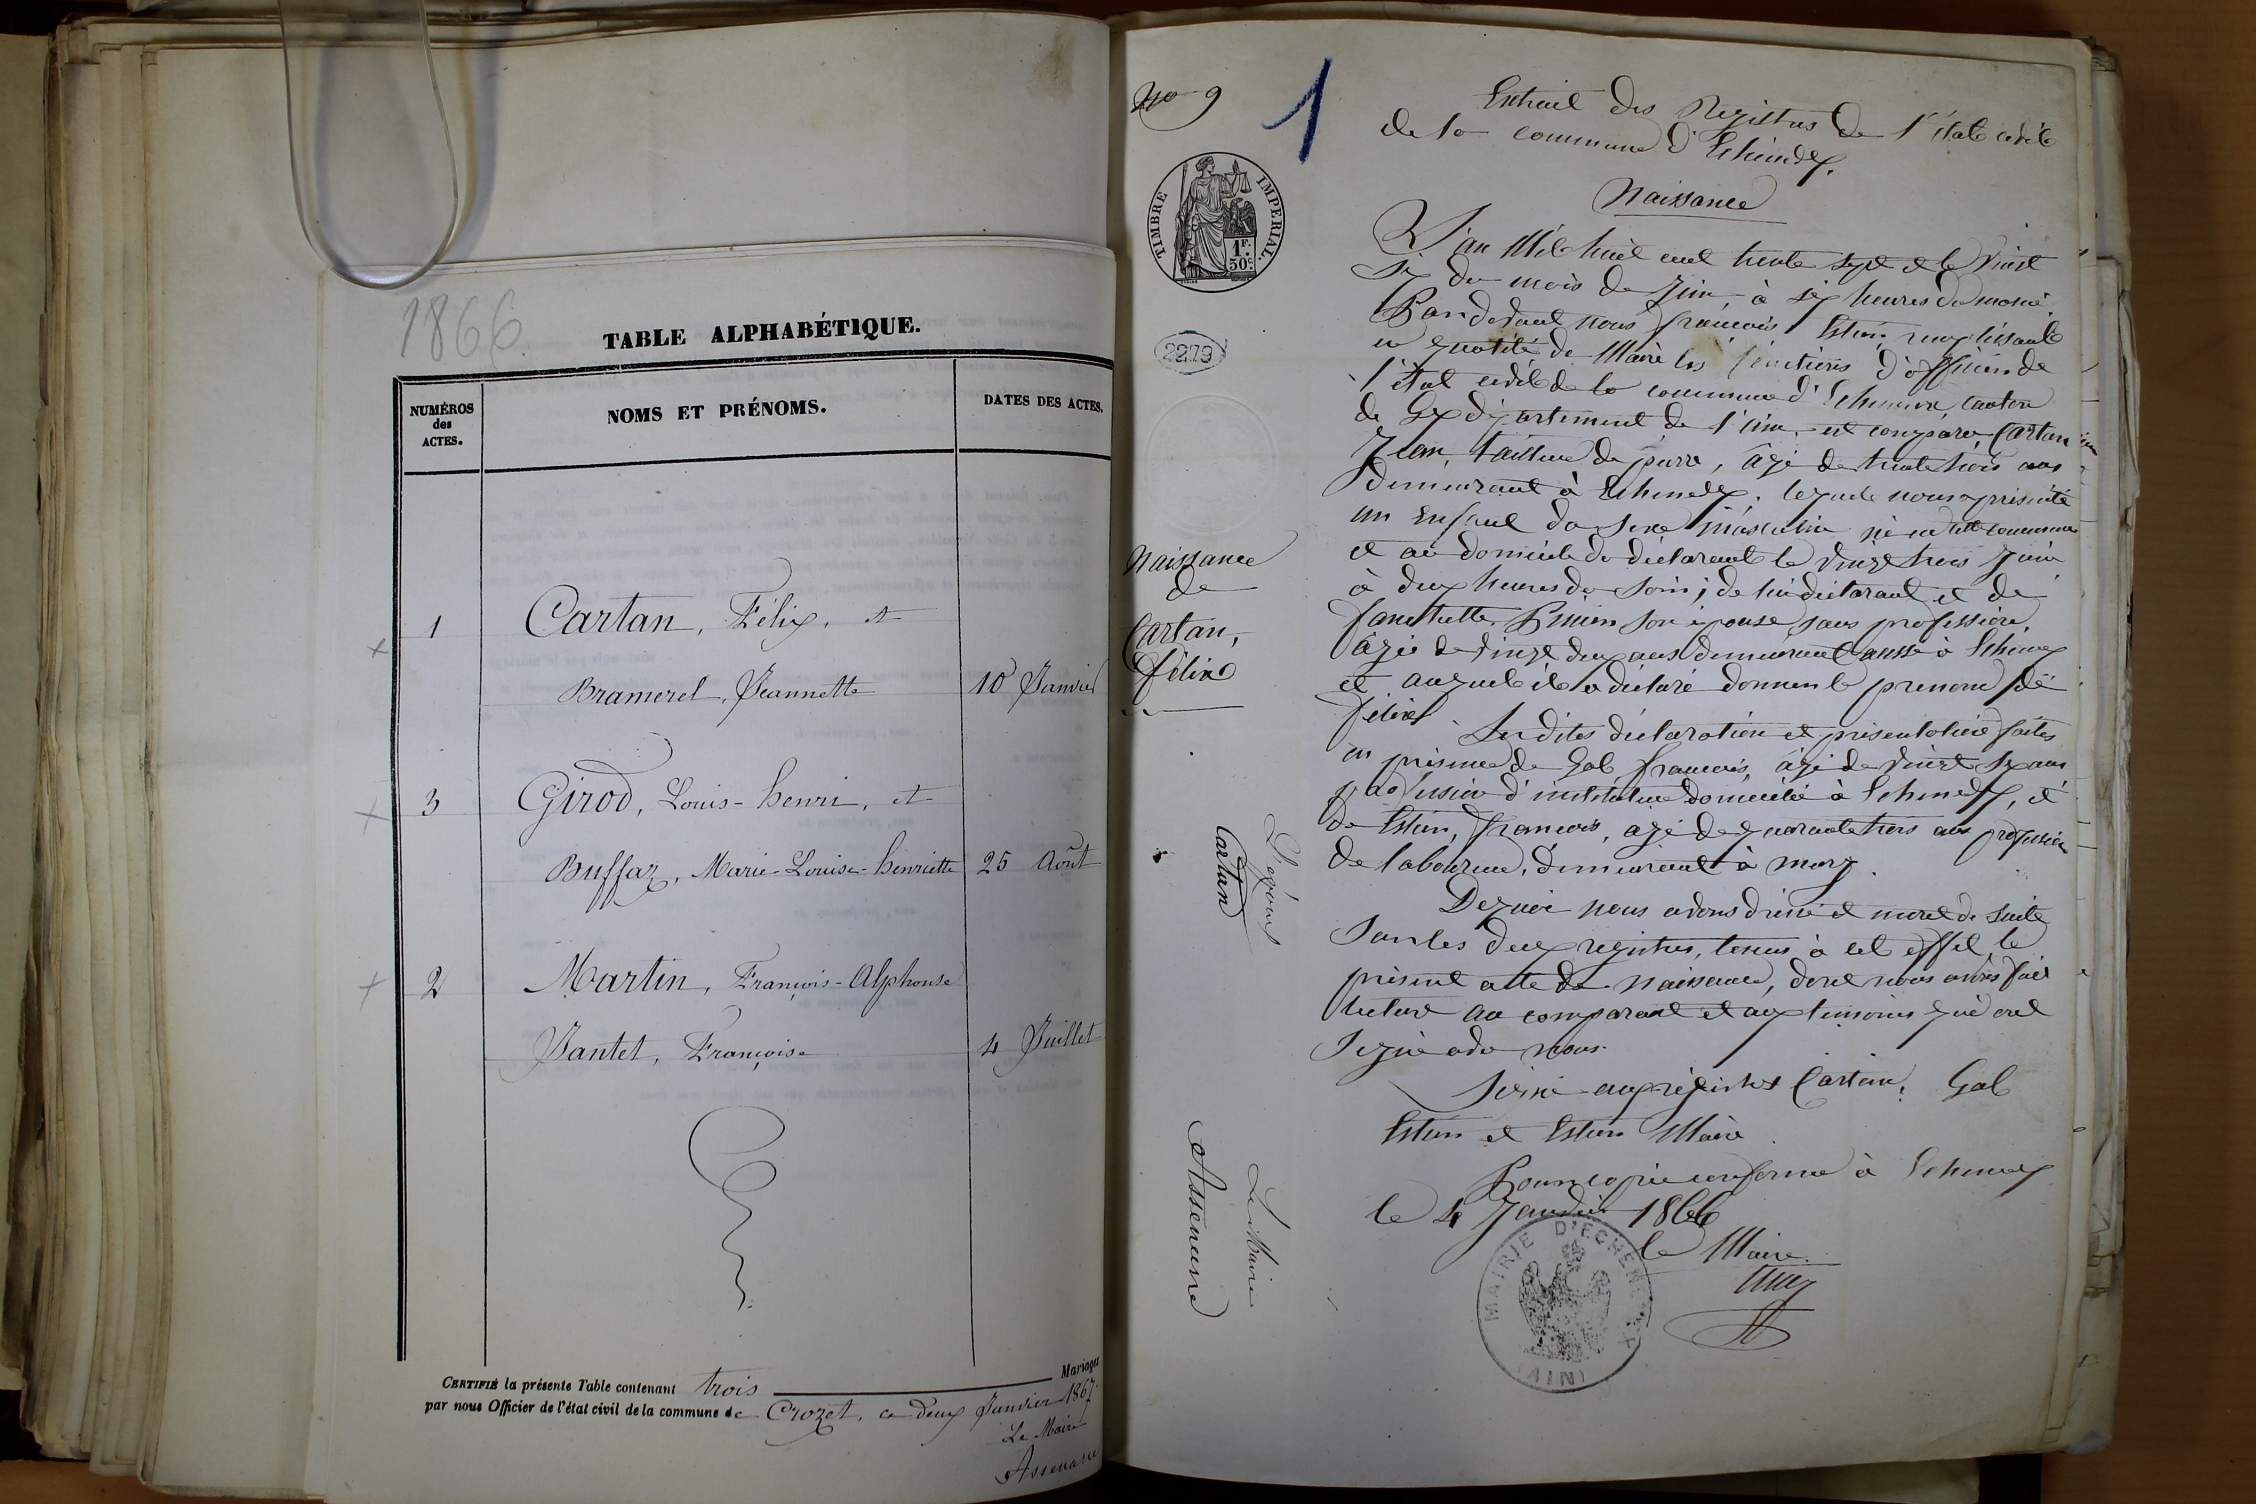 1866
TABLE ALPHABÉTIQUE.
NUMÉROS
des
ACTES.
NOMS ET PRÉNOMS.
DATES DES ACTES.
1
Cartan, Félix, et
Bramerel, Jeannette
10 Janvier
3
Girod, Louis-henri, et
Buffaz, Marie-Louise-henriette
25 Août
2
Martin, François-Alphonse
Jantet, Françoise
4 Juillet
CERTIFIÉ la présente Table contenant trois Mariages
par nous Officier de l'état civil de la commune de Crozet, ce deux Janvier 1867.
Le Maire
No 9
1
TIMBRE IMPERIAL.
1F.
50c
2279
Naissance
de
Cartan,
félix
Cartan
Le Maire
Extrait des Registres de l'état civile
de la commune d'Echenex.
Naissance
L'an Mil huit cent trente sept et le vingt
six du mois de Juin, à six heures du
Pardevant nous françois Estier remplissant
en qualité de Maire les fonctions d'officier de
l'état civil de la commune d'Echenex, canton
de Gex département de l'ain, est comparu Cartan
Jean, tailleur de pierre, âgé de trente trois ans
demeurant à Echenex, lequel nous a présenté
un Enfant du sexe masculin né en cette commune
et au domicile du déclarant le vingt trois Juin
à deux heures du soir; de lui déclarant et de
son épouse, sans profession,
âgée de vingt deux ans demeurant aussi à Echenex
et auquel il a déclaré donner le prenom de
félix.
Les dites déclaration et présentation faites
en présence de Gal, françois, âgé de vingt six ans
profession d'instituteur domicilié à Echenex, et
de Estier, françois, âgé de quarante trois ans profession
de laboureur, demeurant à
De quoi nous avons dressé et de suite
sur les deux registres, tenus à cet effet, le
présent acte de naissance, dont nous avons fait
lecture au comparant et aux temoins qui ont
signé avec nous.
Signé aux registres Cartan, Gal
Estier et Estier Maire
Pour copie conforme à Echenex
le 4 Janvier 1866
le Maire
MAIRIE D'ECHENEVEX
(AIN)